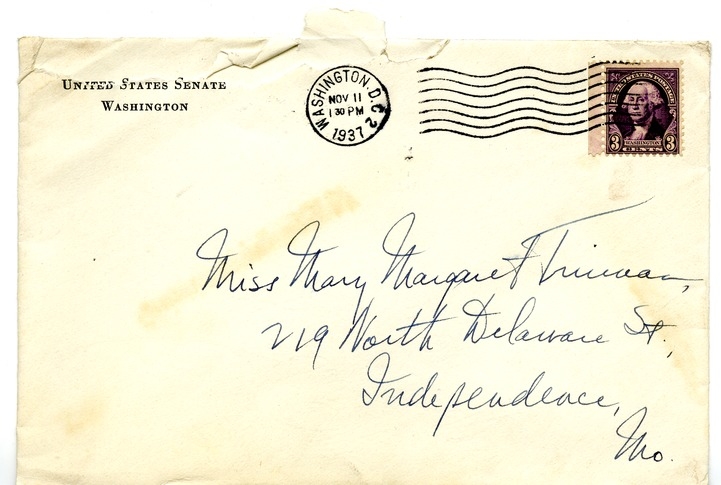 UNITED STATES SENATE
WASHINGTON
WASHINGTON, D.C. 2
NOV 11
1 30 PM
1937
UNITED STATES POSTAGE
3 WASHINGTON 3
CENTS
Miss Mary Margaret Truman,
219 North Delaware St.,
Independence,
Mo.